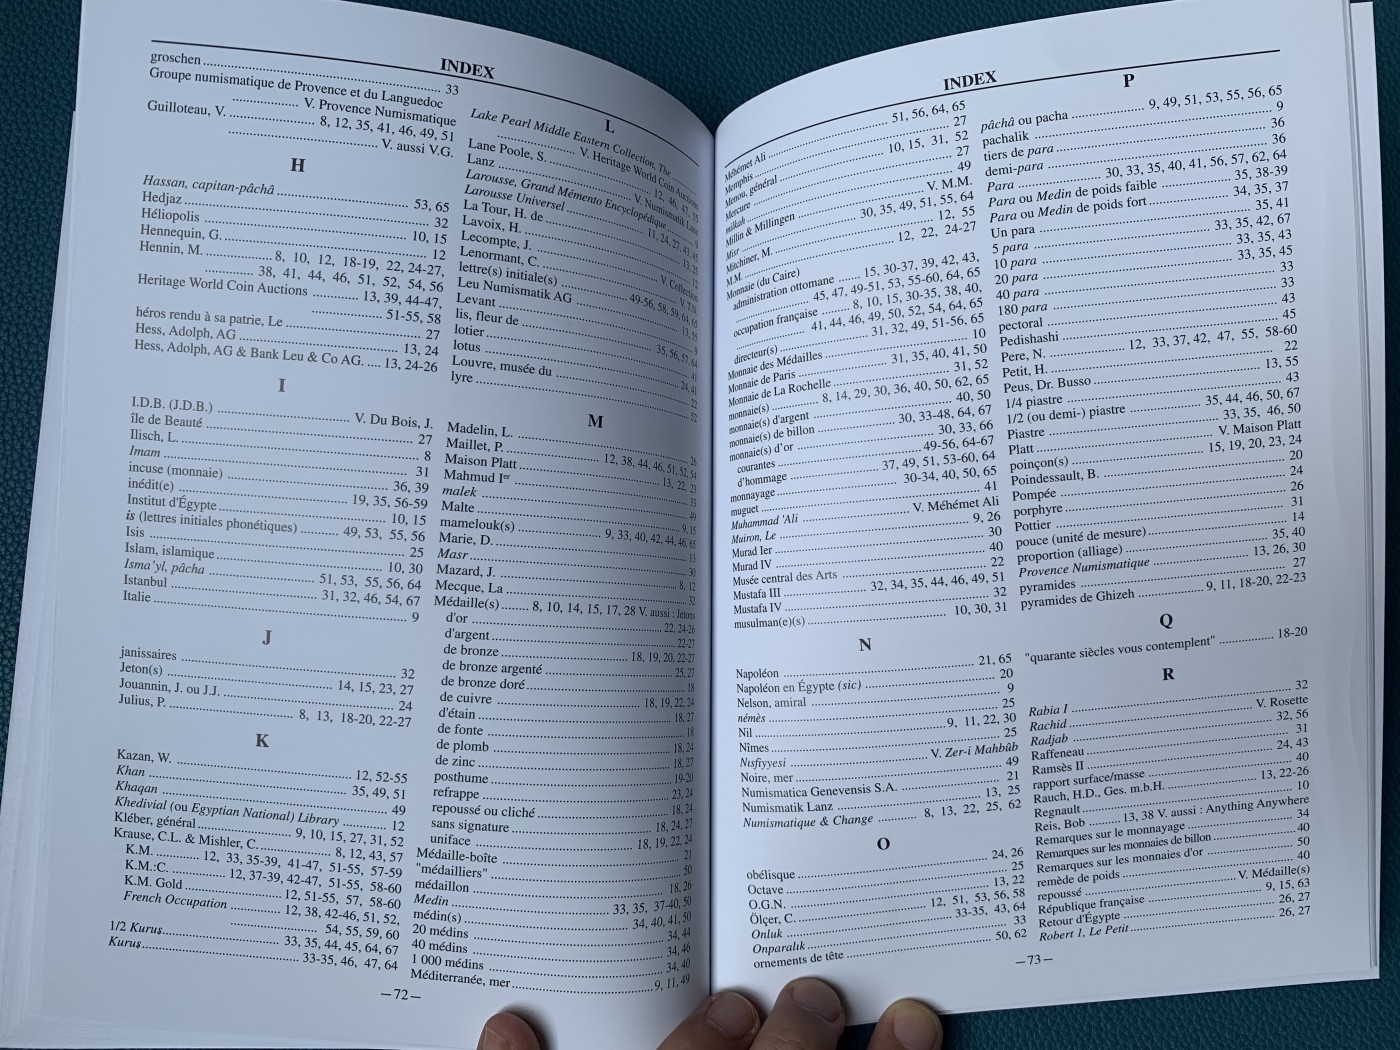 INDEX
groschen ........ 33
Groupe numismatique de Provence et du Languedoc
........ V. Provence Numismatique
Guilloteau, V. ........ 8, 12, 35, 41, 46, 49, 51
........ V. aussi V.G.
H
Hassan, capitan-pâchâ ........ 53, 65
Hedjaz ........ 32
Héliopolis ........ 10, 15
Hennequin, G. ........ 12
Hennin, M. ........ 8, 10, 12, 18-19, 22, 24-27,
........ 38, 41, 44, 46, 51, 52, 54, 56
Heritage World Coin Auctions ........ 13, 39, 44-47,
........ 51-55, 58
héros rendu à sa patrie, Le ........ 27
Hess, Adolph, AG ........ 13, 24
Hess, Adolph, AG & Bank Leu & Co AG. .... 13, 24-26
I
I.D.B. (J.D.B.) ........ V. Du Bois, J.
île de Beauté ........ 27
Ilisch, L. ........ 8
Imam ........ 31
incuse (monnaie) ........ 36, 39
inédit(e) ........ 19, 35, 56-59
Institut d'Égypte ........ 10, 15
is (lettres initiales phonétiques) ........ 49, 53, 55, 56
Isis ........ 25
Islam, islamique ........ 10, 30
Isma'yl, pâcha ........ 51, 53, 55, 56, 64
Istanbul ........ 31, 32, 46, 54, 67
Italie ........ 9
J
janissaires ........ 32
Jeton(s) ........ 14, 15, 23, 27
Jouannin, J. ou J.J. ........ 24
Julius, P. ........ 8, 13, 18-20, 22-27
K
Kazan, W. ........ 12, 52-55
Khan ........ 35, 49, 51
Khaqan ........ 49
Khedivial (ou Egyptian National) Library ........ 12
Kléber, général ........ 9, 10, 15, 27, 31, 52
Krause, C.L. & Mishler, C. ........ 8, 12, 43, 57
K.M. ........ 12, 33, 35-39, 41-47, 51-55, 57-59
K.M.:C. ........ 12, 37-39, 42-47, 51-55, 58-60
K.M. Gold ........ 12, 51-55, 57, 58-60
French Occupation ........ 12, 38, 42-46, 51, 52,
........ 54, 55, 59, 60
1/2 Kurus ........ 33, 35, 44, 45, 64, 67
Kurus ........ 33-35, 46, 47, 64
L
Lake Pearl Middle Eastern Collection, The
........ V. Heritage World Coin Auctions
Lane Poole, S. ........ 12, 46, 47, 55
Lanz ........ V. Numismatik Lanz
Larousse, Grand Mémento Encyclopédique ........ 9
Larousse Universel ........ 11, 24, 27, 43, 45
La Tour, H. de ........
Lavoix, H. ........ 12
Lecompte, J. ........ V. Collection
Lenormant, C. ........ V. T.N.
lettre(s) initiale(s) ........ 49-56, 58, 59, 64, 65
Leu Numismatik AG ........ 13, 55
Levant ........ 9
lis, fleur de ........ 35, 56, 57, 64
lotier ........ 41
lotus ........ 24, 41
Louvre, musée du ........ 22
lyre ........ 52
M
Madelin, L. ........ 26
Maillet, P. ........ 12, 38, 44, 46, 51, 52, 54
Maison Platt ........ 13, 22, 23
Mahmud Ier ........ 33
malek ........ 49
Malte ........ 9, 15
mamelouk(s) ........ 9, 33, 40, 42, 44, 46, 65
Marie, D. ........ 13
Masr ........ 30
Mazard, J. ........ 8, 12
Mecque, La ........ 32
Médaille(s) ........ 8, 10, 14, 15, 17, 28 V. aussi : Jetons
d'or ........ 22, 24-26
d'argent ........ 22-27
de bronze ........ 18, 19, 20, 22-27
de bronze argenté ........ 25, 27
de bronze doré ........ 18
de cuivre ........ 18, 19, 22, 24
d'étain ........ 18, 27
de fonte ........ 18
de plomb ........ 18, 24
de zinc ........ 18, 27
posthume ........ 19-20
refrappe ........ 23, 24
repoussé ou cliché ........ 18, 24
sans signature ........ 18, 24, 27
uniface ........ 18, 19, 22, 24
Médaille-boîte ........ 21
"médailliers" ........ 50
médaillon ........ 18, 26
Medin ........ 33, 35, 37-40, 50
médin(s) ........ 34, 40, 41, 50
20 médins ........ 34, 44
40 médins ........ 34, 46
1 000 médins ........ 34, 40
Méditerranée, mer ........ 9, 11, 49
—72—
INDEX
........ 51, 56, 64, 65
Méhémet Ali ........ 27
Memphis ........ 10, 15, 31, 52
Menou, général ........ 27
Mercure ........ 49
milkah ........ V. M.M.
Millin & Millingen ........ 30, 35, 49, 51, 55, 64
Misr ........ 12, 55
Mitchiner, M. ........ 12, 22, 24-27
M.M. ........
Monnaie (du Caire)
administration ottomane ........ 15, 30-37, 39, 42, 43,
........ 45, 47, 49-51, 53, 55-60, 64, 65
occupation française ........ 8, 10, 15, 30-35, 38, 40,
........ 41, 44, 46, 49, 50, 52, 54, 64, 65
directeur(s) ........ 31, 32, 49, 51-56, 65
Monnaie des Médailles ........ 10
Monnaie de Paris ........ 31, 35, 40, 41, 50
Monnaie de La Rochelle ........ 31, 52
monnaie(s) ........ 8, 14, 29, 30, 36, 40, 50, 62, 65
monnaie(s) d'argent ........ 40, 50
monnaie(s) de billon ........ 30, 33-48, 64, 67
monnaie(s) d'or ........ 30, 33, 66
courantes ........ 49-56, 64-67
d'hommage ........ 37, 49, 51, 53-60, 64
monnayage ........ 30-34, 40, 50, 65
muguet ........ 41
Muhammad 'Ali ........ V. Méhémet Ali
Muiron, Le ........ 9, 26
Murad Ier ........ 30
Murad IV ........ 40
Musée central des Arts ........ 22
Mustafa III ........ 32, 34, 35, 44, 46, 49, 51
Mustafa IV ........ 32
musulman(e)(s) ........ 10, 30, 31
N
Napoléon ........ 21, 65
Napoléon en Égypte (sic) ........ 20
Nelson, amiral ........ 9
némès ........ 25
Nil ........ 9, 11, 22, 30
Nîmes ........ 25
Nısfiyyesi ........ V. Zer-i Mahbûb
Noire, mer ........ 49
Numismatica Genevensis S.A. ........ 21
Numismatik Lanz ........ 13, 25
Numismatique & Change ........ 8, 13, 22, 25, 62
O
obélisque ........ 24, 26
Octave ........ 25
O.G.N. ........ 13, 22
Ölçer, C. ........ 12, 51, 53, 56, 58
Onluk ........ 33-35, 43, 64
Onparalık ........ 33
ornements de tête ........ 50, 62
P
pâchâ ou pacha ........ 9, 49, 51, 53, 55, 56, 65
pachalik ........ 9
tiers de para ........ 36
demi-para ........ 36
Para ........ 30, 33, 35, 40, 41, 56, 57, 62, 64
Para ou Medin de poids faible ........ 35, 38-39
Para ou Medin de poids fort ........ 34, 35, 37
Un para ........ 35, 41
5 para ........ 33, 35, 42, 67
10 para ........ 33, 35, 43
20 para ........ 33, 35, 45
40 para ........ 33
180 para ........ 33
pectoral ........ 43
Pedishashi ........ 45
Pere, N. ........ 12, 33, 37, 42, 47, 55, 58-60
Petit, H. ........ 22
Peus, Dr. Busso ........ 13, 55
1/4 piastre ........ 43
1/2 (ou demi-) piastre ........ 35, 44, 46, 50, 67
Piastre ........ 33, 35, 46, 50
Platt ........ V. Maison Platt
poinçon(s) ........ 15, 19, 20, 23, 24
Poindessault, B. ........ 20
Pompée ........ 24
porphyre ........ 26
Pottier ........ 31
pouce (unité de mesure) ........ 14
proportion (alliage) ........ 35, 40
Provence Numismatique ........ 13, 26, 30
pyramides ........ 27
pyramides de Ghizeh ........ 9, 11, 18-20, 22-23
Q
"quarante siècles vous contemplent" ........ 18-20
R
Rabia I ........ 32
Rachid ........ V. Rosette
Radjab ........ 32, 56
Raffeneau ........ 31
Ramsès II ........ 24, 43
rapport surface/masse ........ 40
Rauch, H.D., Ges. m.b.H. ........ 13, 22-26
Regnault ........ 10
Reis, Bob ........ 13, 38 V. aussi : Anything Anywhere
Remarques sur le monnayage ........ 34
Remarques sur les monnaies de billon ........ 40
Remarques sur les monnaies d'or ........ 50
remède de poids ........ 40
repoussé ........ V. Médaille(s)
République française ........ 9, 15, 63
Retour d'Égypte ........ 26, 27
Robert 1, Le Petit ........ 26, 27
—73—